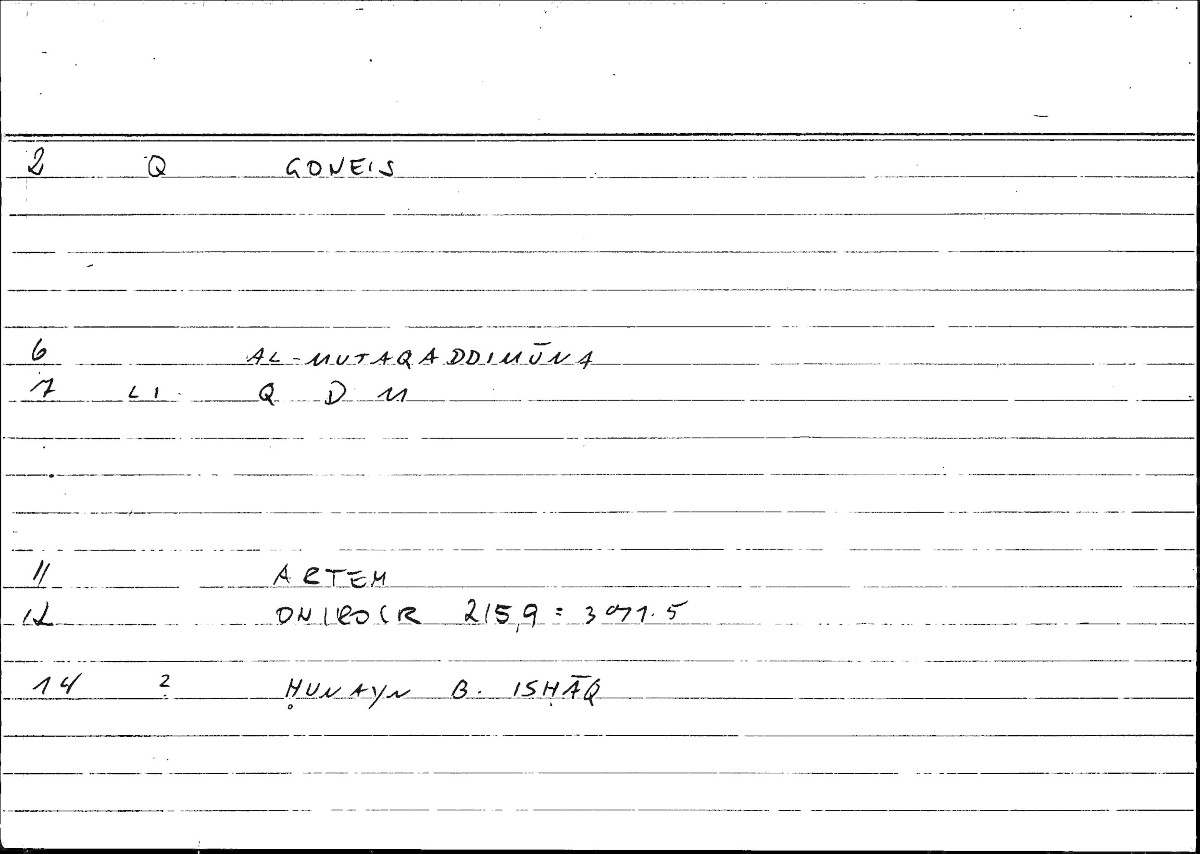 2 Q GONEIS
6 AL-MUTAQADDIMŪNA
7 LI. Q D M
11 ARTEM
12 ONIROCR 215,9 = 391.5
14 2 ḤUNAYN B. ISḤĀQ